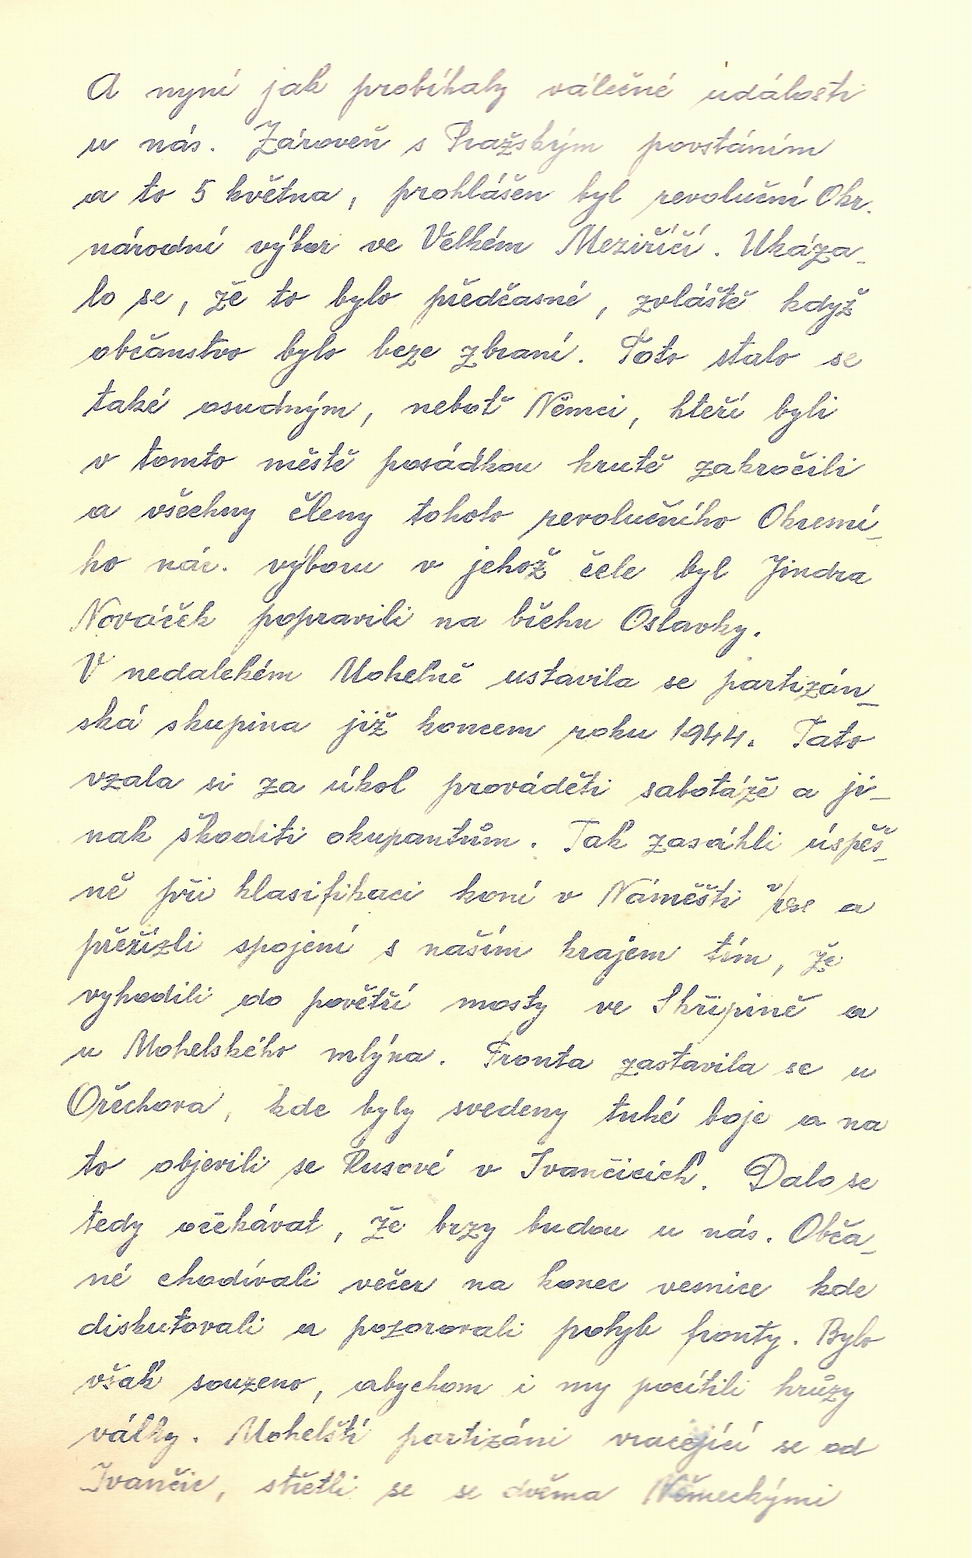 A nyní jak probíhaly válečné události
u nás. Zároveň s Pražským povstáním
a to 5 května, prohlášen byl revoluční Okr.
národní výbor ve Velkém Meziříčí. Ukáza_
lo se, že to bylo předčasné, zvláště když
občanstvo bylo beze zbraní. Toto stalo se
také osudným, neboť Němci, kteří byli
v tomto městě posádkou krutě zakročili
a všechny členy tohoto revolučního Okresní_
ho nár. výboru v jehož čele byl Jindra
Nováček popravili na břehu Oslavky.
V nedalekém Mohelně ustavila se partizán_
ská skupina již koncem roku 1944. Tato
vzala si za úkol prováděti sabotáže a ji_
nak škoditi okupantům. Tak zasáhli úspěš_
ně při klasifikaci koní v Náměšti a
přeřízli spojení s naším krajem tím, že
vyhodili do povětří mosty ve Skřipině a
u Mohelského mlýna. Fronta zastavila se u
Ořechova, kde byly svedeny tuhé boje a na
to objevili se Rusové v Ivančicích. Dalo se
tedy očekávat, že brzy budou u nás. Obča_
né chodívali večer na konec vesnice kde
diskutovali a pozorovali pohyb fronty. Bylo
však souzeno, abychom i my pocítili hrůzy
války. Mohelští partizáni vracející se od
Ivančic, střetli se se dvěma Německými